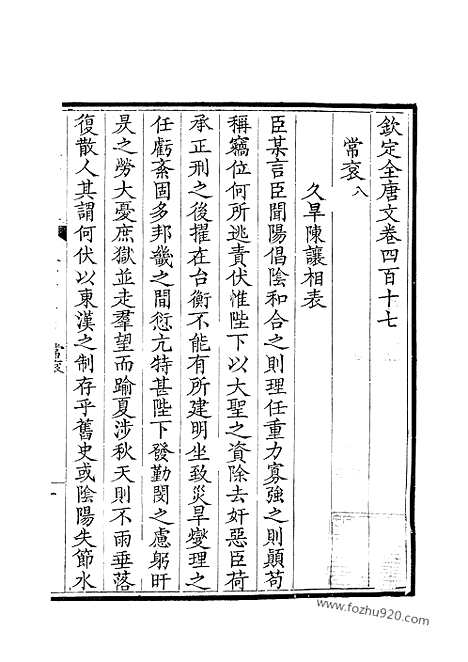 欽定全唐文卷四百十七
常袞八
久旱陳讓相表
臣某言臣聞陽倡陰和合之則理任重力寡強之則顛苟
稱竊位何所逃責伏惟陛下以大聖之資除去奸惡臣荷
承正刑之後擢在台衡不能有所建明坐致災旱燮理之
任虧紊固多邦畿之間愆亢特甚陛下發勤閔之慮躬旰
昃之勞大憂庶獄並走羣望而踰夏涉秋天則不雨垂落
復散人其謂何伏以東漢之制存乎舊史或陰陽失節水
常袞
一
www.fozhu920.com